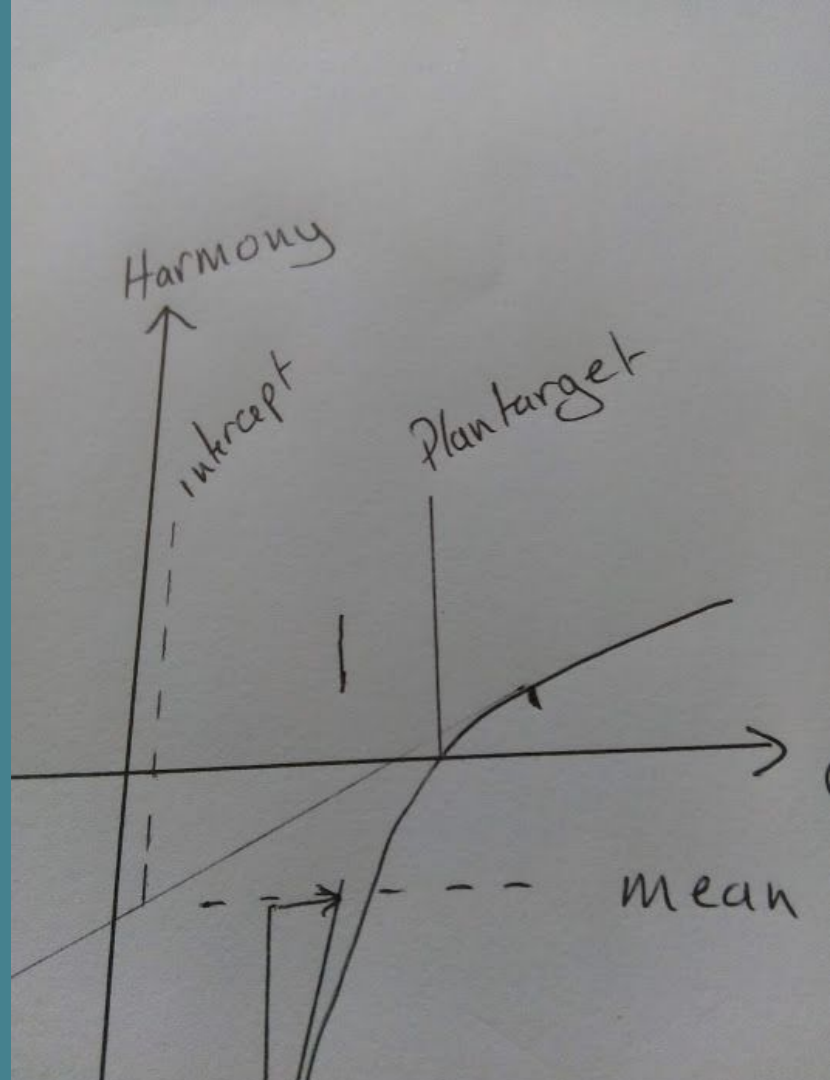 Harmony
intercept
Plan target
mean